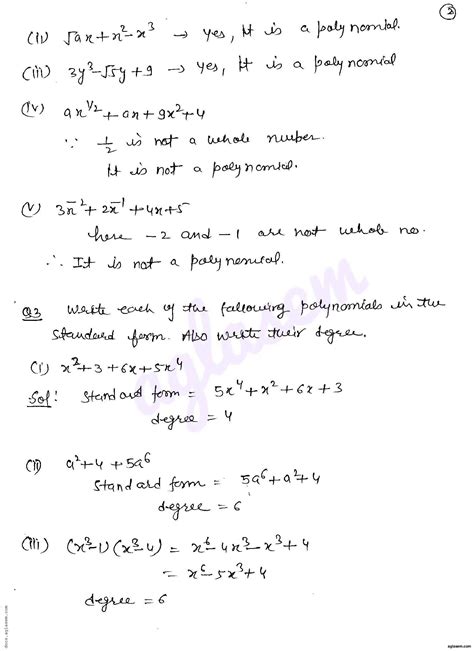 2
(ii) √ax + x² - x³ → Yes, It is a polynomial.
(iii) 3y³ - √5y + 9 → Yes, It is a polynomial
(iv) ax^1/2 + ax + 9x² + 4
∵ 1/2 is not a whole number.
It is not a polynomial.
(v) 3x⁻² + 2x⁻¹ + 4x + 5
here -2 and -1 are not whole no.
∴ It is not a polynomial.
Q3 Write each of the following polynomials in the
standard form. Also write their degree.
(i) x² + 3 + 6x + 5x⁴
Sol: Standard form = 5x⁴ + x² + 6x + 3
degree = 4
(ii) a² + 4 + 5a⁶
Standard form = 5a⁶ + a² + 4
degree = 6
(iii) (x³-1)(x³-4) = x⁶ - 4x³ - x³ + 4
= x⁶ - 5x³ + 4
degree = 6
aglasem
docs.aglasem.com
aglasem.com